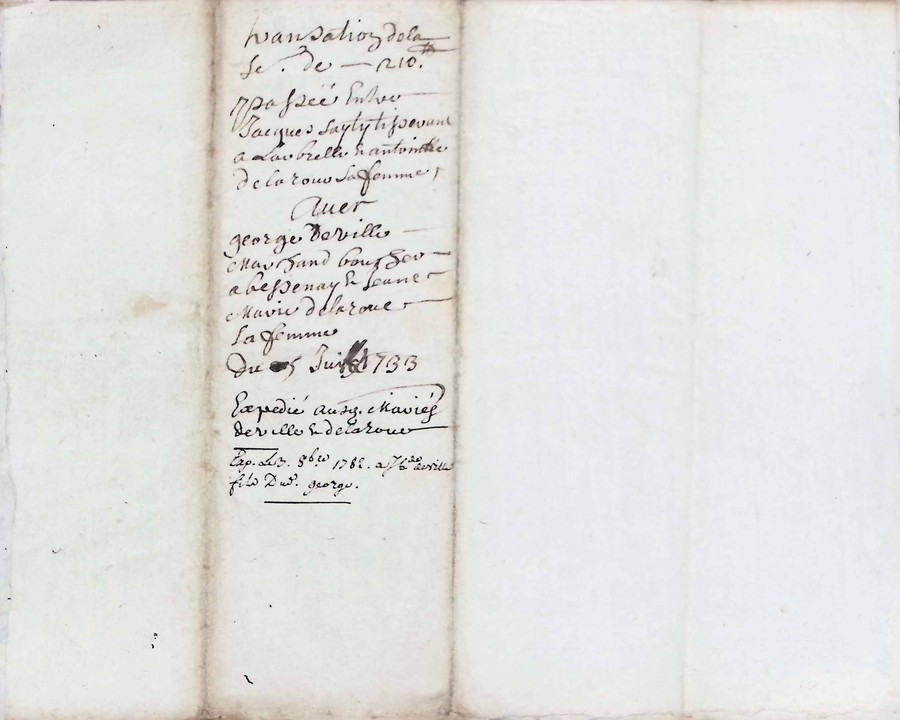 transation dela
se. de — 210.tt
passéé Entre
Jacques tisserant
a Larbrelle & antoinette
delaroue sa femme,
Auec
george Deville
Marchand boucher
a bessenay & Jeanne
Marie delaroue
sa femme
Du 5 1733
Expedié ausd. Mariés
deville & delaroue
Exp. Le 3. 8bre 1762. a deville
fils Dud. george.